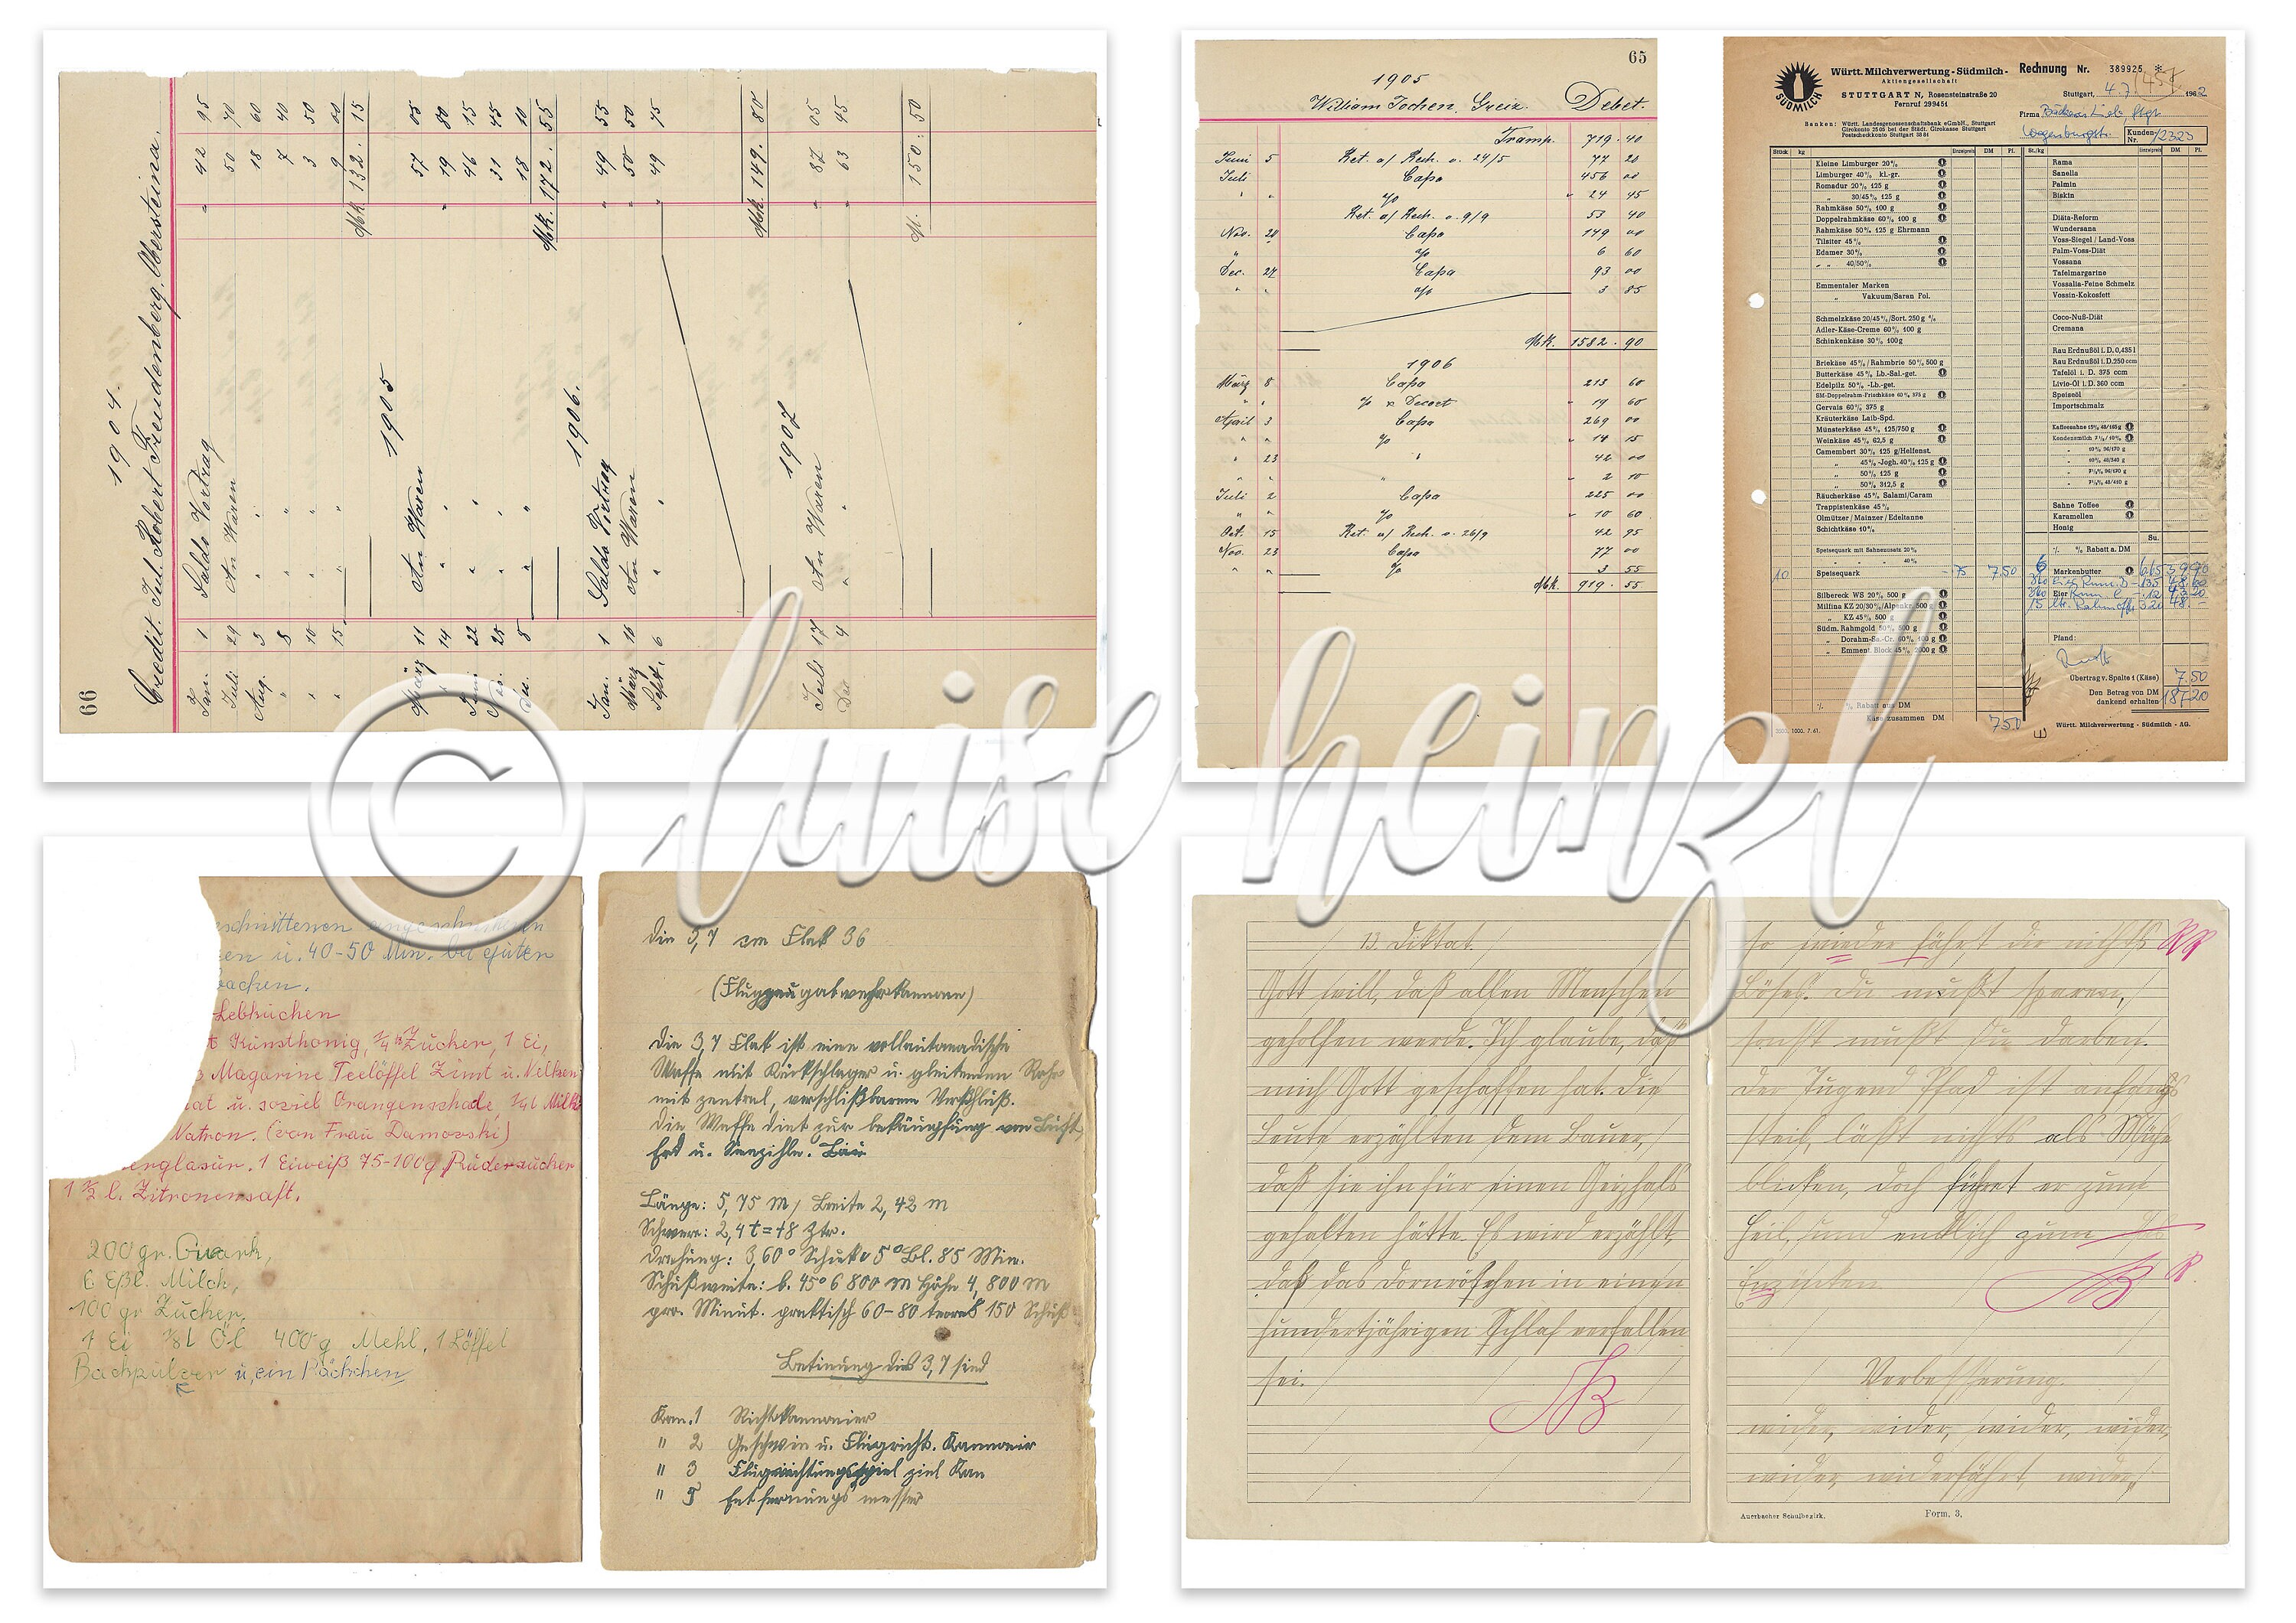 66
1904.
Credit. Jul. Robert Freudenberg, Obersteina.
Jan. 1 Saldo Vortrag " 42 95
Juli 29 An Waren 50 70
Aug. 3 " " 18 60
" 8 " " 7 40
" 10 " " 3 50
" 15 " " 9 00
Mk. 132. 15
1905
März 11 An Waren 57 05
" 14 " " 19 80
Juni 22 " " 46 15
Nov. 25 " " 31 45
Dec. 8 " " 18 10
Mk. 172. 55
1906.
Jan. 1 Saldo Vortrag " 49 55
März 10 An Waren " 50 50
Sept. 6 " " " 49 75
Mk. 149. 80
1907
Juli 17 An Waren " 87 05
Dec 4 " " " 63 45
M. 150. 50
65
1905
William Jochen, Greiz. Debet.
Transp. 719. 40
Juni 5 Ret. a/ Rech. v. 24/5 77 20
Juli Cassa 456 00
" " " 24 45
Ret. a/ Rech. v. 9/9 53 40
Nov. 20 Cassa 149 00
" 6 60
Dec. 27 Cassa 93 00
" " 3 85
Mk. 1582. 90
1906
März 8 Cassa 213 60
" " " 19 60
April 3 Cassa 269 00
" " " 14 15
" 23 " 42 00
" " " 2 10
Juli 2 Cassa 225 00
" " " 10 60
Oct. 15 Ret. a/ Rech. v. 26/9 42 95
Nov. 23 Cassa 77 00
" " 3 55
Mk. 919. 55
SÜDMILCH
Württ. Milchverwertung-Südmilch-
Aktiengesellschaft
STUTTGART N, Rosensteinstraße 20
Fernruf 299451
Rechnung Nr. 389925 *
Stuttgart, 4.7. 1962
Firma Bäckerei Lieb, Stgt
Wagenburgstr. Kunden-Nr. 12323
Banken: Württ. Landesgenossenschaftsbank eGmbH., Stuttgart
Girokonto 2505 bei der Städt. Girokasse Stuttgart
Postscheckkonto Stuttgart 5581
Stück kg Einzelpreis DM Pf. St./kg Einzelpreis DM Pf.
Kleine Limburger 20%
Limburger 40% kl.-gr.
Romadur 20% 125 g
" 30/45% 125 g
Rahmkäse 50% 100 g
Doppelrahmkäse 60% 100 g
Rahmkäse 50% 125 g Ehrmann
Tilsiter 45%
Edamer 30%
" " 40/50%
Emmentaler Marken
" Vakuum/Saran Pol.
Schmelzkäse 20/45%/Sort. 250 g %
Adler-Käse-Creme 60% 100 g
Schinkenkäse 30% 100g
Briekäse 45%/Rahmbrie 50% 500 g
Butterkäse 45% Lb.-Sal.-get.
Edelpilz 50% -Lb.-get.
SM-Doppelrahm-Frischkäse 60% 375 g
Gervais 60% 375 g
Kräuterkäse Laib-Spd.
Münsterkäse 45% 125/750 g
Weinkäse 45% 62,5 g
Camembert 30% 125 g/Helfenst.
" 45%-Jogh. 40% 125 g
" 50% 125 g
" 50% 312,5 g
Räucherkäse 45% Salami/Caram
Trappistenkäse 45%
Olmützer/Mainzer/Edeltanne
Schichtkäse 10%
Speisequark mit Sahnezusatz 20%
" " " 40%
10 Speisequark - 75 7.50
Silbereck WS 20% 500 g
Milfina KZ 20/30%/Alpenkr. 500 g
" KZ 45% 500 g
Südm. Rahmgold 50% 500 g
" Dorahm-Sa.-Cr. 60% 100 g
" Emment. Block 45% 2000 g
% % Rabatt aus DM
Käse zusammen DM 7.50
2000. 1000. 7. 61.
Rama
Sanella
Palmin
Biskin
Diäta-Reform
Wundersana
Voss-Siegel/Land-Voss
Palm-Voss-Diät
Vossana
Tafelmargarine
Vossalia-Feine Schmelz
Vossin-Kokosfett
Coco-Nuß-Diät
Cremana
Rau Erdnußöl i. D. 0,485 l
Rau Erdnußöl i. D. 250 ccm
Tafelöl i. D. 375 ccm
Livio-Öl i. D. 360 ccm
Speiseöl
Importschmalz
Kaffeesahne 15% 48/165 g
Kondensmilch 7½/10%
" 10% 96/170 g
" 10% 48/340 g
" 7½% 96/170 g
" 7½% 48/410 g
Sahne Toffee
Karamellen
Honig
Su.
% % Rabatt a. DM
6 Markenbutter 6.65 39.90
360 Eier Kum. B -.135 48.60
360 Eier Kum. C -.12 43.20
15 ltr. 3.20 48.-
Pfand:
Übertrag v. Spalte 1 (Käse) 7.50
Den Betrag von DM 187.20
dankend erhalten
Württ. Milchverwertung - Südmilch - AG.
© luise heinzl
eschnittenen eingeschnittenen
en u. 40-50 Min. bei guter
backen.
Lebkuchen
Kunsthonig, ¼ ℔ Zucker, 1 Ei,
Magarine Teelöffel Zimt u. Nelken
nat u. soviel Orangenschade, ¼ l Milch
Natron. (von Frau Damovski)
englasur. 1 Eiweiß 75-100g Puderzucker
1 ½ l. Zitronensaft.
200 gr. Quark,
6 Eßl. Milch,
100 gr Zucker,
1 Ei ⅛ l Öl 400 g Mehl, 1 Löffel
Backpulver u, ein Päckchen
Die 3,7 cm Flak 36
(Flugzeugabwehrkannone)
Die 3,7 Flak ist eine vollautomadische
Waffe mit Rückschlager u. gleitenden Rohr
mit zentral, verschlißbarem Verschluß.
Die Waffe dint zur bekämpfung von Luft
Erd u. Seezihle.
Länge: 5,75 M, Breite 2,42 m
Schwere: 2,4 t = 48 Ztr.
Drehung: 360° Schuko 5° Bl. 85 Min.
Schußweite: b. 45° 6 800 m Höhe 4,800 M
pro. Minut. praktisch 60-80 teoret 150 Schuß
Bedinung die 3,7 sind
Kan. 1 Richtkannonier
" 2 Geschwin u. Flugricht. Kannonier
" 3 Flugrichtungspiel ziel Kan
" 5 Entfernungsmesser
13. Diktat.
Gott will, daß allen Menschen
geholfen werde. Ich glaube, daß
mich Gott geschaffen hat. Die
Leute erzählten dem Bauer,
daß sie ihn für einen Geizhals
gehalten hätte. Es wird erzählt,
daß das Dornröschen in einen
hundertjährigen Schlaf verfallen
sei.
so wieder fährt dir nichts
Böses. Du mußt sparen,
sonst mußt du darben.
Der Jugend Pfad ist anfangs
steil, läßt nichts als Mühe
blicken, doch führet er zum
Heil, und endlich zum
Enzücken.
Verbesserung.
wider, wider, wider, wider,
wider, widerfährt, wider,
Auerbacher Schulbezirk. Form. 3.